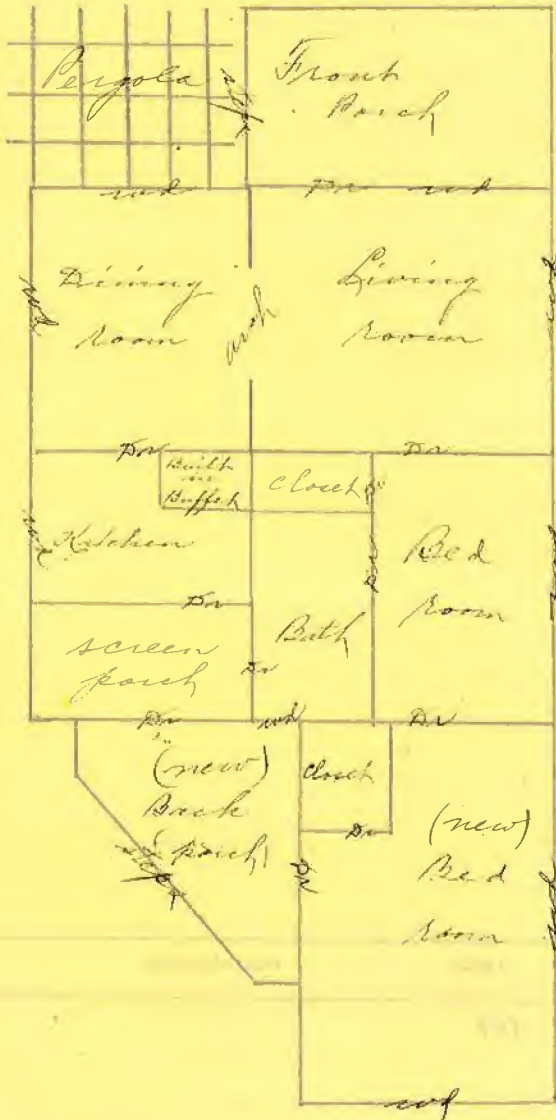 Pergola
steps
Front
Porch
wd
Dr
wd
wd
Dining
Room
arch
Living
Room
wd
Dr
Built
in
Buffet
Closet
Dr
Dr
wd
Kitchen
Dr
Bed
Room
wd
Dr
screen
porch
Bath
Dr
Dr
wd
Dr
(new)
Back
porch
steps
Closet
Dr
Dr
(new)
Bed
Room
wd
wd